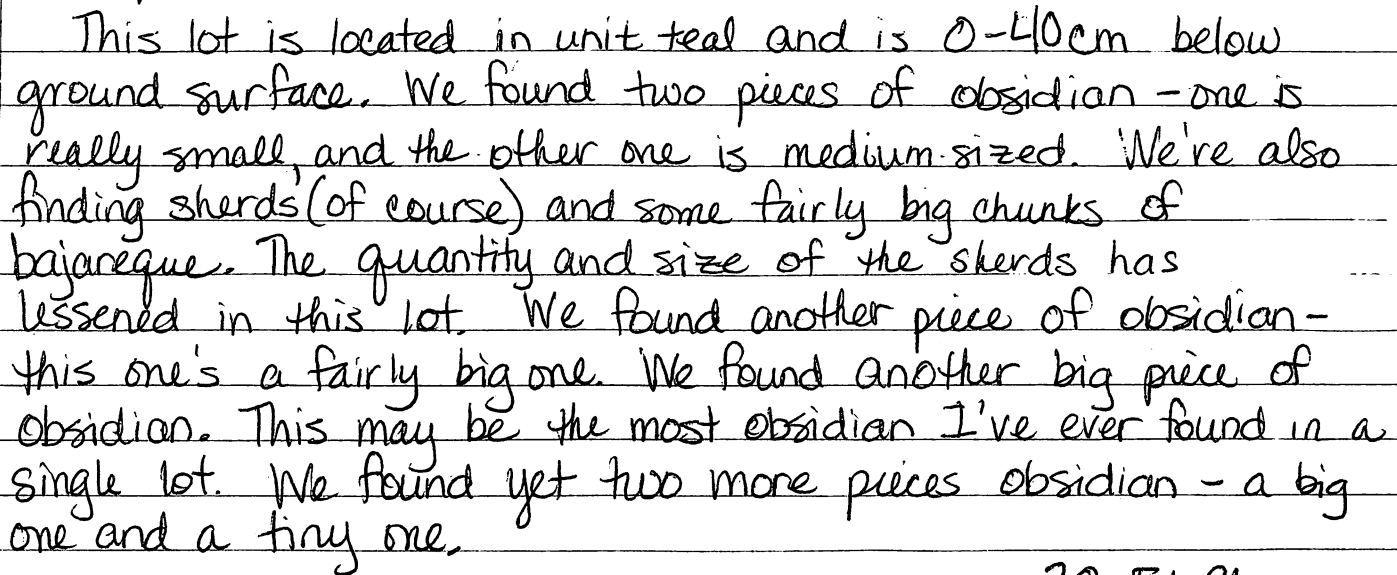 This lot is located in unit teal and is 0-40cm below
ground surface. We found two pieces of obsidian - one is
really small, and the other one is medium-sized. We're also
finding sherds (of course) and some fairly big chunks of
bajareque. The quantity and size of the sherds has
lessened in this lot. We found another piece of obsidian -
this one's a fairly big one. We found another big piece of
obsidian. This may be the most obsidian I've ever found in a
single lot. We found yet two more pieces obsidian - a big
one and a tiny one.